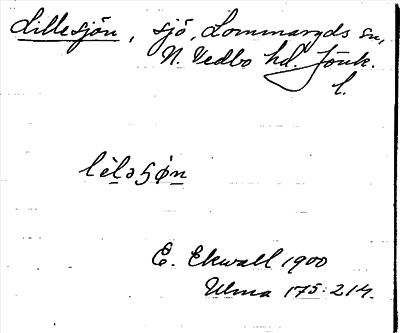 Lillesjön, sjö, Lommaryds sn,
N. Vedbo hd. Jönk.
l.
lèləʂǿn
E. Ekwall 1900
Ulma 175:214.